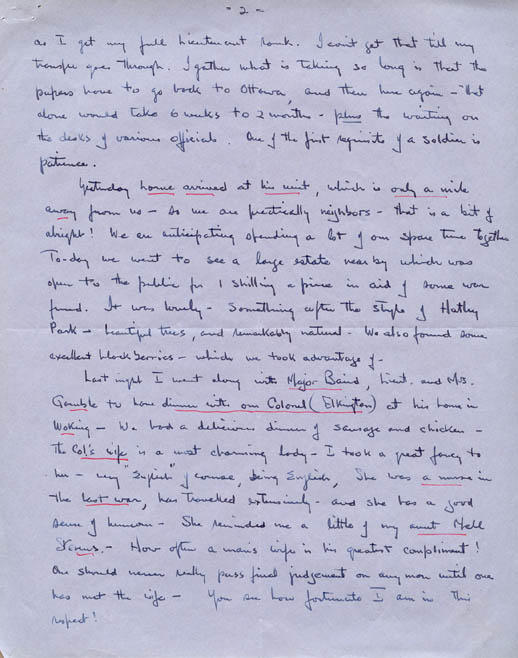 - 2 -
as I get my full Lieutenant rank. I can't get that till my
transfer goes through. I gather what is taking so long is that the
papers have to go back to Ottawa, and then here again - that
alone would take 6 weeks to 2 months - plus the waiting on
the desks of various officials. One of the first requisites of a soldier is
patience.
Yesterday arrived at his unit, which is only a mile
away from us - so we are practically neighbors - that is a bit of
alright! We are anticipating spending a lot of our spare time together
To-day we went to see a large estate near by which was
open to the public for 1 shilling a piece in aid of some war
fund. It was lovely - Something after the style of Hatley
Park - beautiful trees, and remarkably natural - We also found some
excellent blackberries - which we took advantage of -
Last night I went along with Major Baird, Lieut. and Mrs.
Gamble to have dinner with our Colonel (Elkington) at his home in
Woking - We had a delicious dinner of sausage and chicken -
The Col's wife is a most charming lady - I took a great fancy to
her - very "English" of course, being English, She was a nurse in
the last war, has travelled extensively - and she has a good
sense of humour - She reminded me a little of my aunt Nell
- How often a man's wife is his greatest compliment!
One should never really pass final judgement on any man until one
has met the wife - You see how fortunate I am in this
respect!